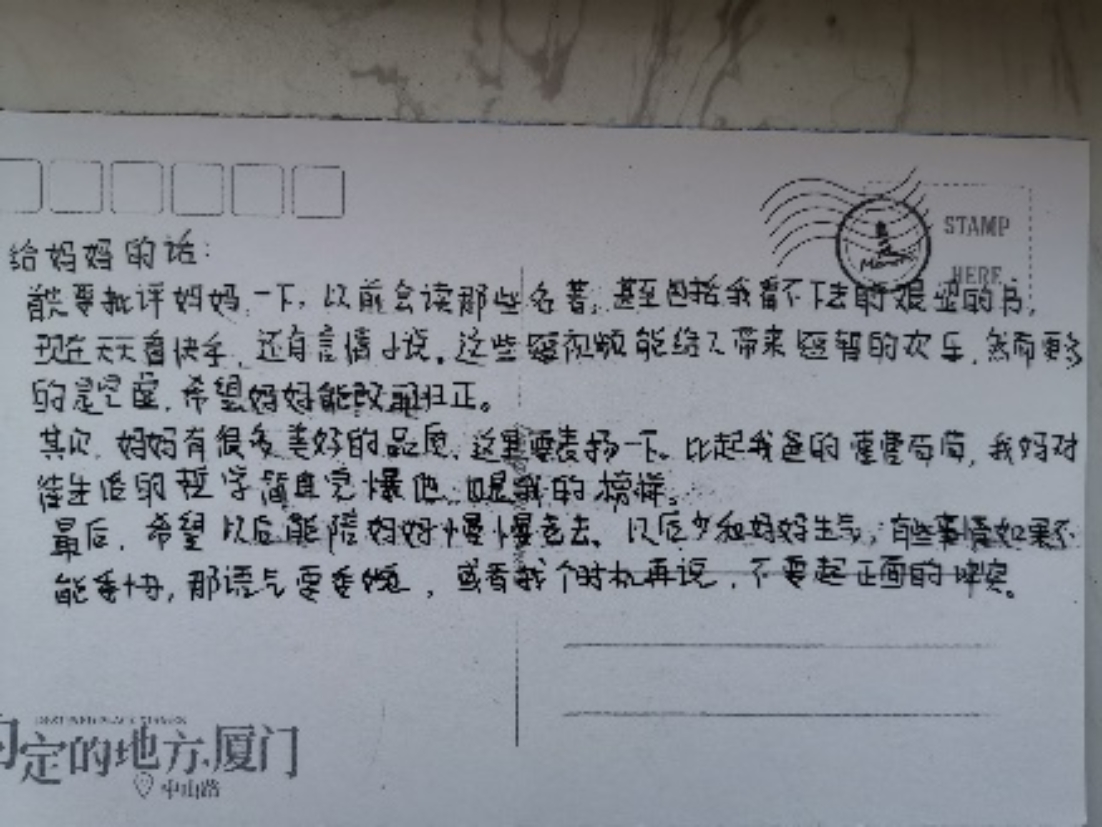 STAMP
HERE
给妈妈的话：
首先要批评妈妈一下，以前会读那些名著，甚至包括我看不下去的艰涩的书，
现在天天看快手，还有言情小说，这些短视频能给人带来短暂的欢乐，然而更多
的是空虚，希望妈妈能改邪归正。
其次，妈妈有很多美好的品质，这里要表扬一下。比起我爸的蝇营狗苟，我妈对
待生活的哲学简直完爆他，也是我的榜样。
最后，希望以后能陪妈妈慢慢老去，以后少和妈妈生气，有些事情如果不
能妥协，那语气要委婉，或者找个时机再说，不要起正面的冲突。
定的地方.厦门
中山路